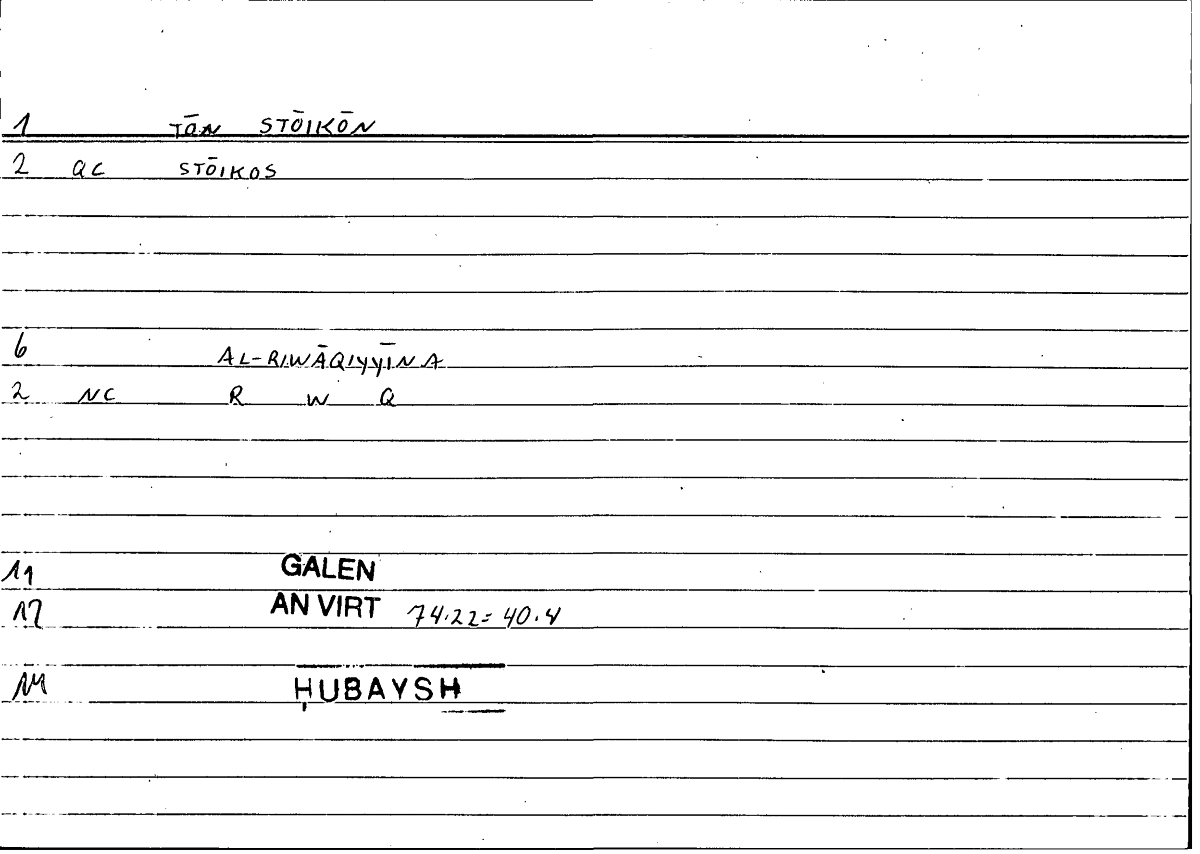 1 TŌN STŌIKŌN
2 QC STŌIKOS
6 AL-RIWĀQIYYĪNA
2 NC R W Q
11 GALEN
12 AN VIRT 74.22 = 40.4
14 ḤUBAYSH